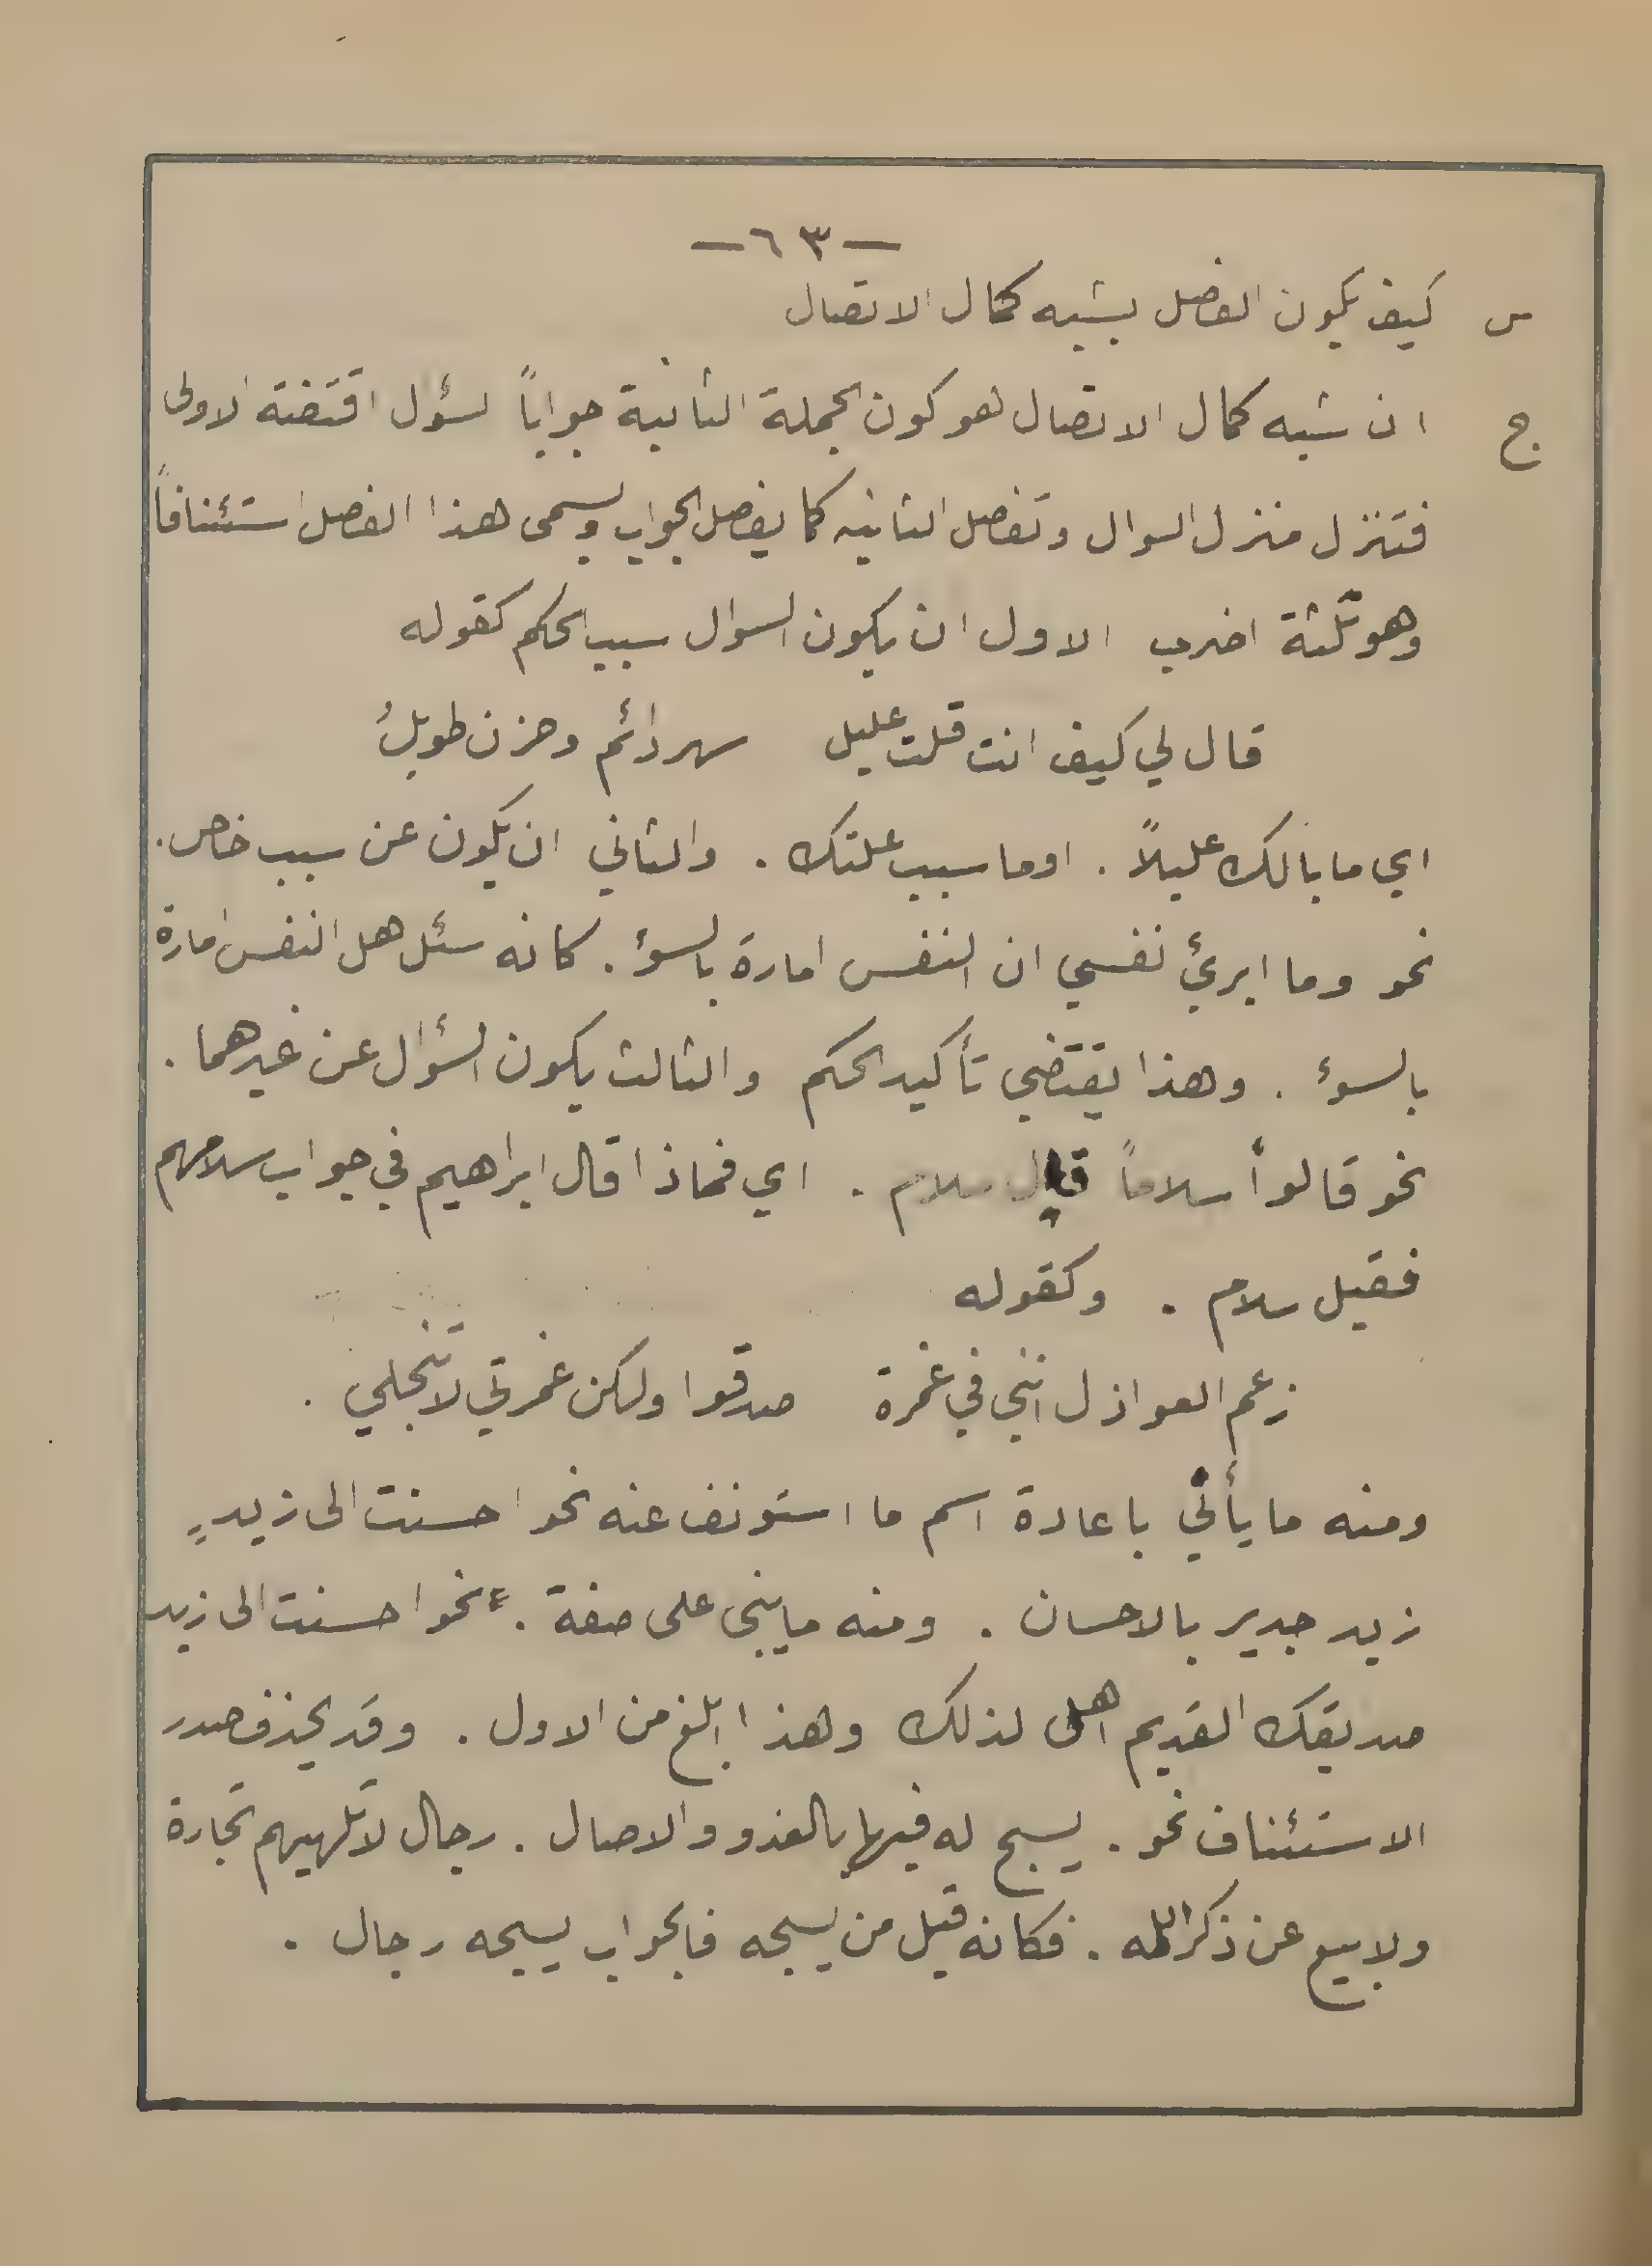 — ٦٣ —
س كيف يكون الفصل بشبه كمال الاتصال
ج ان شبه كمال الاتصال هو كون الجملة الثانية جواباً لسؤل اقتضته الاولى
فتنزل منزل السوال وتفصل الثانيه كما يفصل الجواب ويسمى هذا الفصل استئنافاً
وهو ثلثة اضرب الاول ان يكون السوال سبب الحكم كقوله
قال لي كيف انت قلت عليل سهر دائم وحزن طويلُ
اي ما بالك عليلاً . او ما سبب علتك . والثاني ان يكون عن سبب خاص .
نحو وما ابرئ نفسي ان النفس امارة بالسؤ . كانه سئل هل النفس امارة
بالسوء . وهذا يقتضي تأكيد الحكم والثالث يكون السؤال عن غيرهما .
نحو قالوا سلاماً قال سلام . اي فماذا قال ابراهيم في جواب سلامهم
فقيل سلام . وكقوله
زعم العواذل انني في غمرة صدقوا ولكن غمرتي لا تنجلي .
ومنه ما يأتي باعادة اسم ما استونف عنه نحو احسنت الى زيدٍ
زيد جدير بالاحسان . ومنه ما يبنى على صفة . نحو احسنت الى زيد
صديقك القديم اهل لذلك وهذا ابلغ من الاول . وقد يحذف صدر
الاستئناف نحو . يسبح له فيها بالغدو والاصال . رجال لا تلهيهم تجارة
ولا بيع عن ذكر الله . فكانه قيل من يسبحه فالجواب يسبحه رجال .